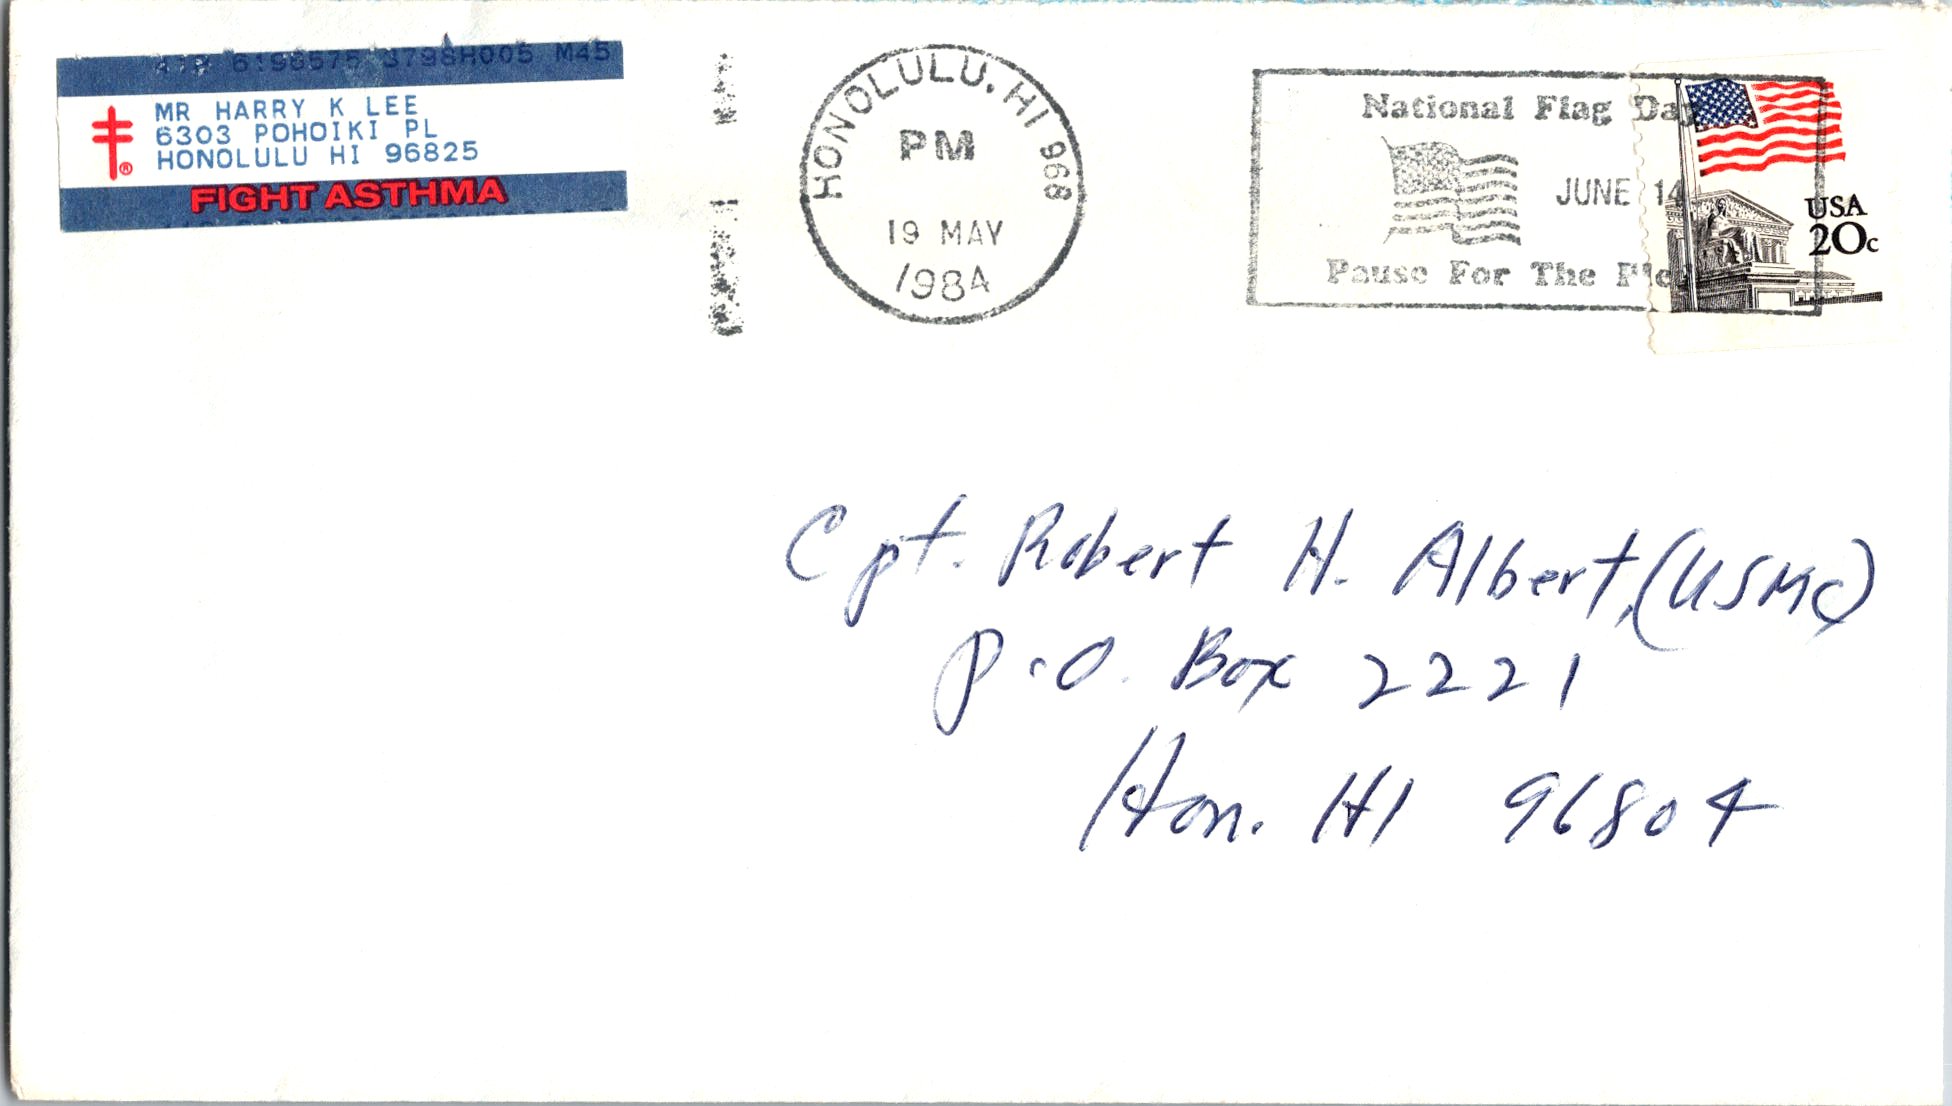 6196575 3798H005 M45
MR HARRY K LEE
6303 POHOIKI PL
HONOLULU HI 96825
FIGHT ASTHMA
HONOLULU, HI 968
PM
19 MAY
1984
National Flag Day
JUNE 14
Pause For The
USA
20c
Cpt. Robert H. Albert, (USMC)
P.O. Box 2221
Hon. HI 96804